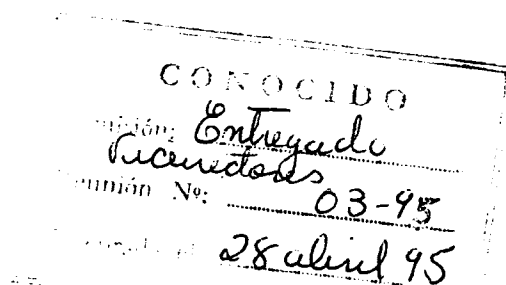 CONOCIDO
Entregado
Vicerrectores
Reunión Nº: 03-95
28 abril 95